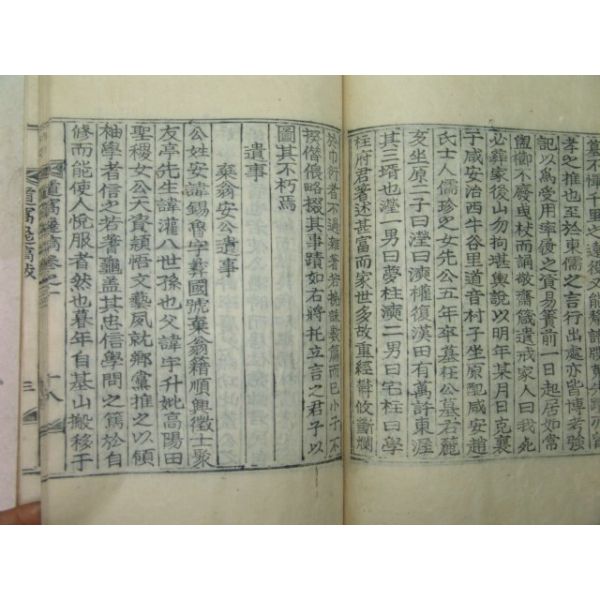 墓不憚千里之遠後又能幇
孝之推也至於東儒之言行出處亦皆博考強
記以爲受用率後之資易簀前一日起居如常
盥櫛不廢曳杖而誦敬齋箴遺戒家人曰我死
必葬家後山勿拘堪輿說以明年某月日克襄
于咸安治西牛谷里道音村子坐原配咸安趙
氏士人儒珍之女先公五年卒墓在公墓右麓
亥坐原二子曰瀅曰漢權復漢田有萬許東涯
其三壻也瀅一男曰夢柱漢二男曰宅柱曰學
柱府君著述甚富而家世多故重經欝攸斷爛
於巾衍者不過雜著若揚䟽數篇而已小子不
揆僣偎略掇其事蹟如右將托立言之君子以
圖其不朽焉
遺事
棄翁安公遺事
公姓安諱錫魯字葬國號棄翁籍順興徵士聚
友亭先生諱灌八世孫也父諱宇升妣高陽田
聖稷女公天資穎悟文藝夙就鄉黨推之以領
袖學者信之若蓍龜盖其忠信學問之篤於自
修而能使人悅服者然也暮年自基山搬移于
道窩逸稿卷之一
十八
道窩逸稿跋
三